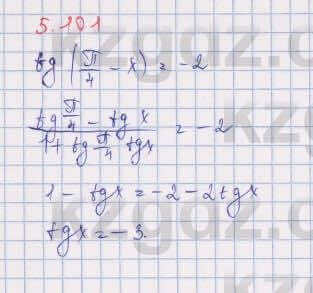 5.101
tg (π/4 - x) = -2
(tg π/4 - tg x) / (1 + tg π/4 tgx) = -2
1 - tgx = -2 - 2tgx
tgx = -3.
kzgdz.kz